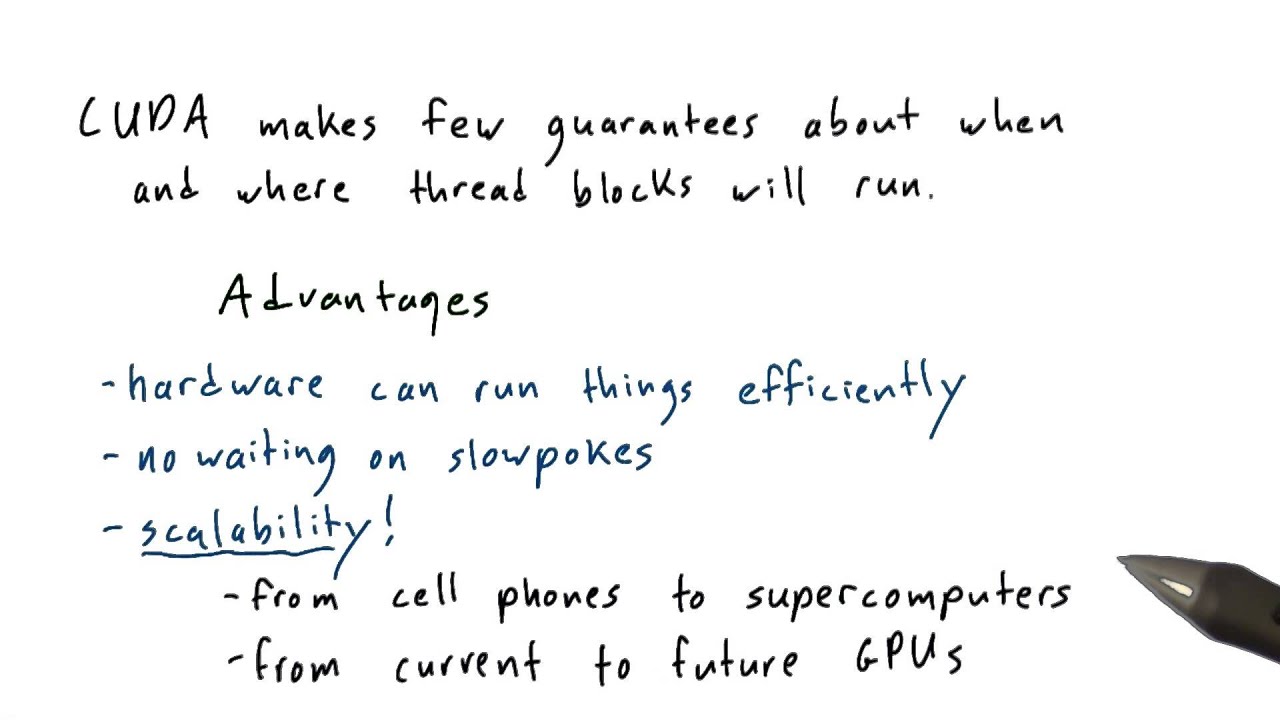 CUDA makes few guarantees about when
and where thread blocks will run.
Advantages
- hardware can run things efficiently
- no waiting on slowpokes
- scalability!
- from cell phones to supercomputers
- from current to future GPUs